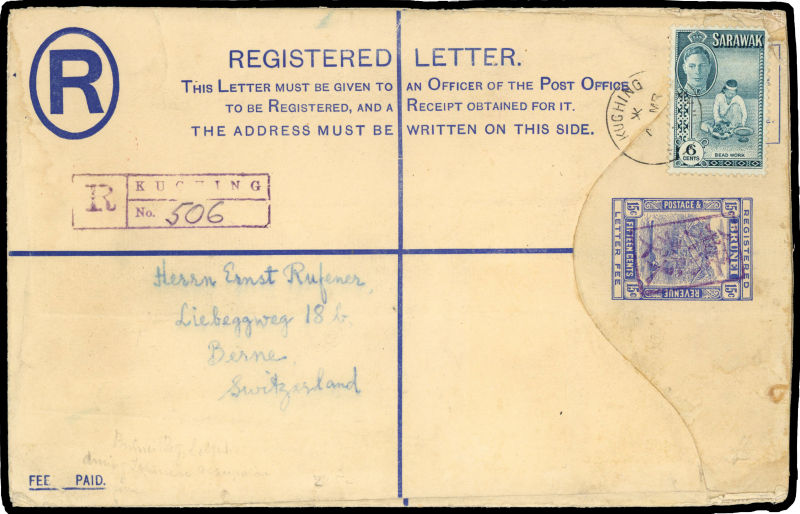 R
REGISTERED LETTER.
THIS LETTER MUST BE GIVEN TO AN OFFICER OF THE POST OFFICE
TO BE REGISTERED, AND A RECEIPT OBTAINED FOR IT.
THE ADDRESS MUST BE WRITTEN ON THIS SIDE.
SARAWAK
6
CENTS
BEAD WORK
KUCHING
R
KUCHING
No. 506
POSTAGE &
15c
15c
LETTER FEE
FIFTEEN CENTS
BRUNEI
REGISTERED
15c
15c
REVENUE
Herrn Ernst Rufener,
Liebeggweg 18 b.
Berne
Switzerland
FEE PAID.